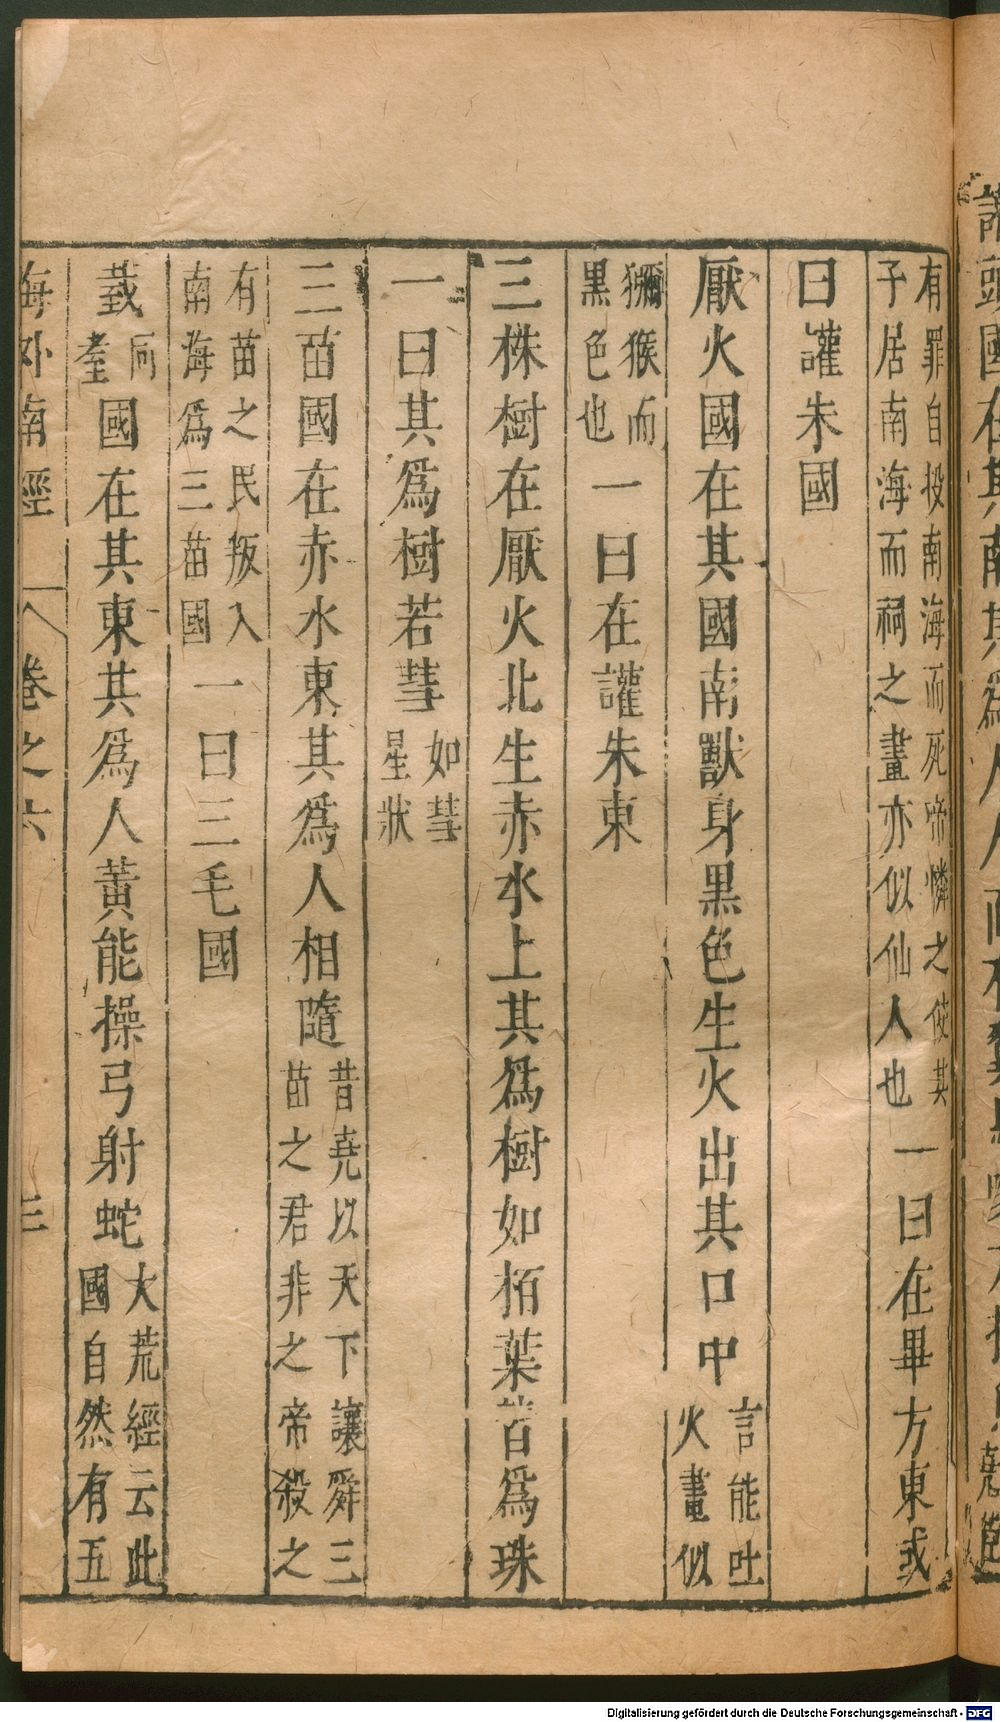 有罪自投南海而死帝憐之使其
子居南海而祠之畫亦似仙人也一曰在畢方東或
曰讙朱國
厭火國在其國南獸身黑色生火出其口中言能吐
火畫似
獼猴而
黑色也一曰在讙朱東
三株樹在厭火北生赤水上其爲樹如栢葉皆爲珠
一曰其爲樹若彗如彗
星狀
三苗國在赤水東其爲人相隨昔堯以天下讓舜三
苗之君非之帝殺之
有苗之民叛入
南海爲三苗國一曰三毛國
臷國在其東其爲人黃能操弓射蛇大荒經云此
國自然有五
海外南經 卷之六 三
Digitalisierung gefördert durch die Deutsche Forschungsgemeinschaft - DFG